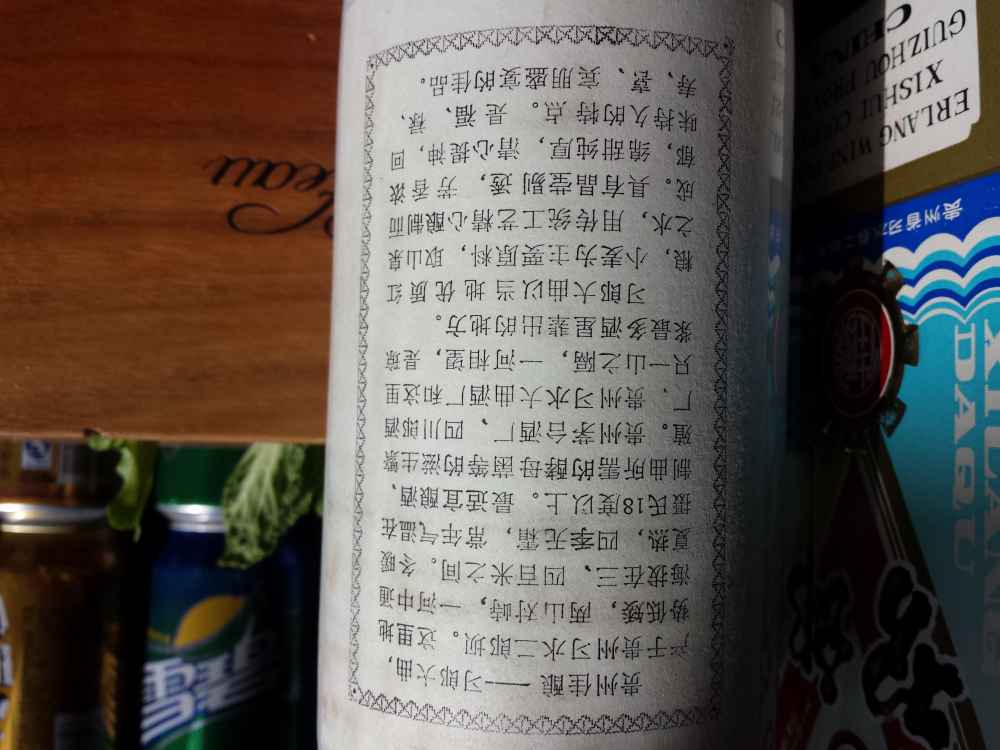 贵州佳酿——习郎大曲，
产于贵州习水二郎坝。这里地
势低矮，两山对峙，一河中通
海拔在三、四百米之间。冬暖
夏热，四季无霜，常年气温在
摄氏18度以上。最适宜酿酒，
制曲所需的酵母菌等的滋生繁
殖。贵州茅台酒厂、四川郎酒
厂、贵州习水大曲酒厂和这里
只一山之隔，一河相望，是琼
浆最多酒星荟出的地方。
习郎大曲以当地优质红
粮，小麦为主要原料，取山泉
之水，用传统工艺精心酿制而
成。具有晶莹剔透，芳香浓
郁，绵甜纯厚，清心提神，回
味持久的特点。是福、禄、
寿、喜、宾朋盛宴的佳品。
ERLANG WINE
XISHUI COU
GUIZHOU PRO
CHINA
贵州省习水
XILANG
DAQU
雪碧
eau